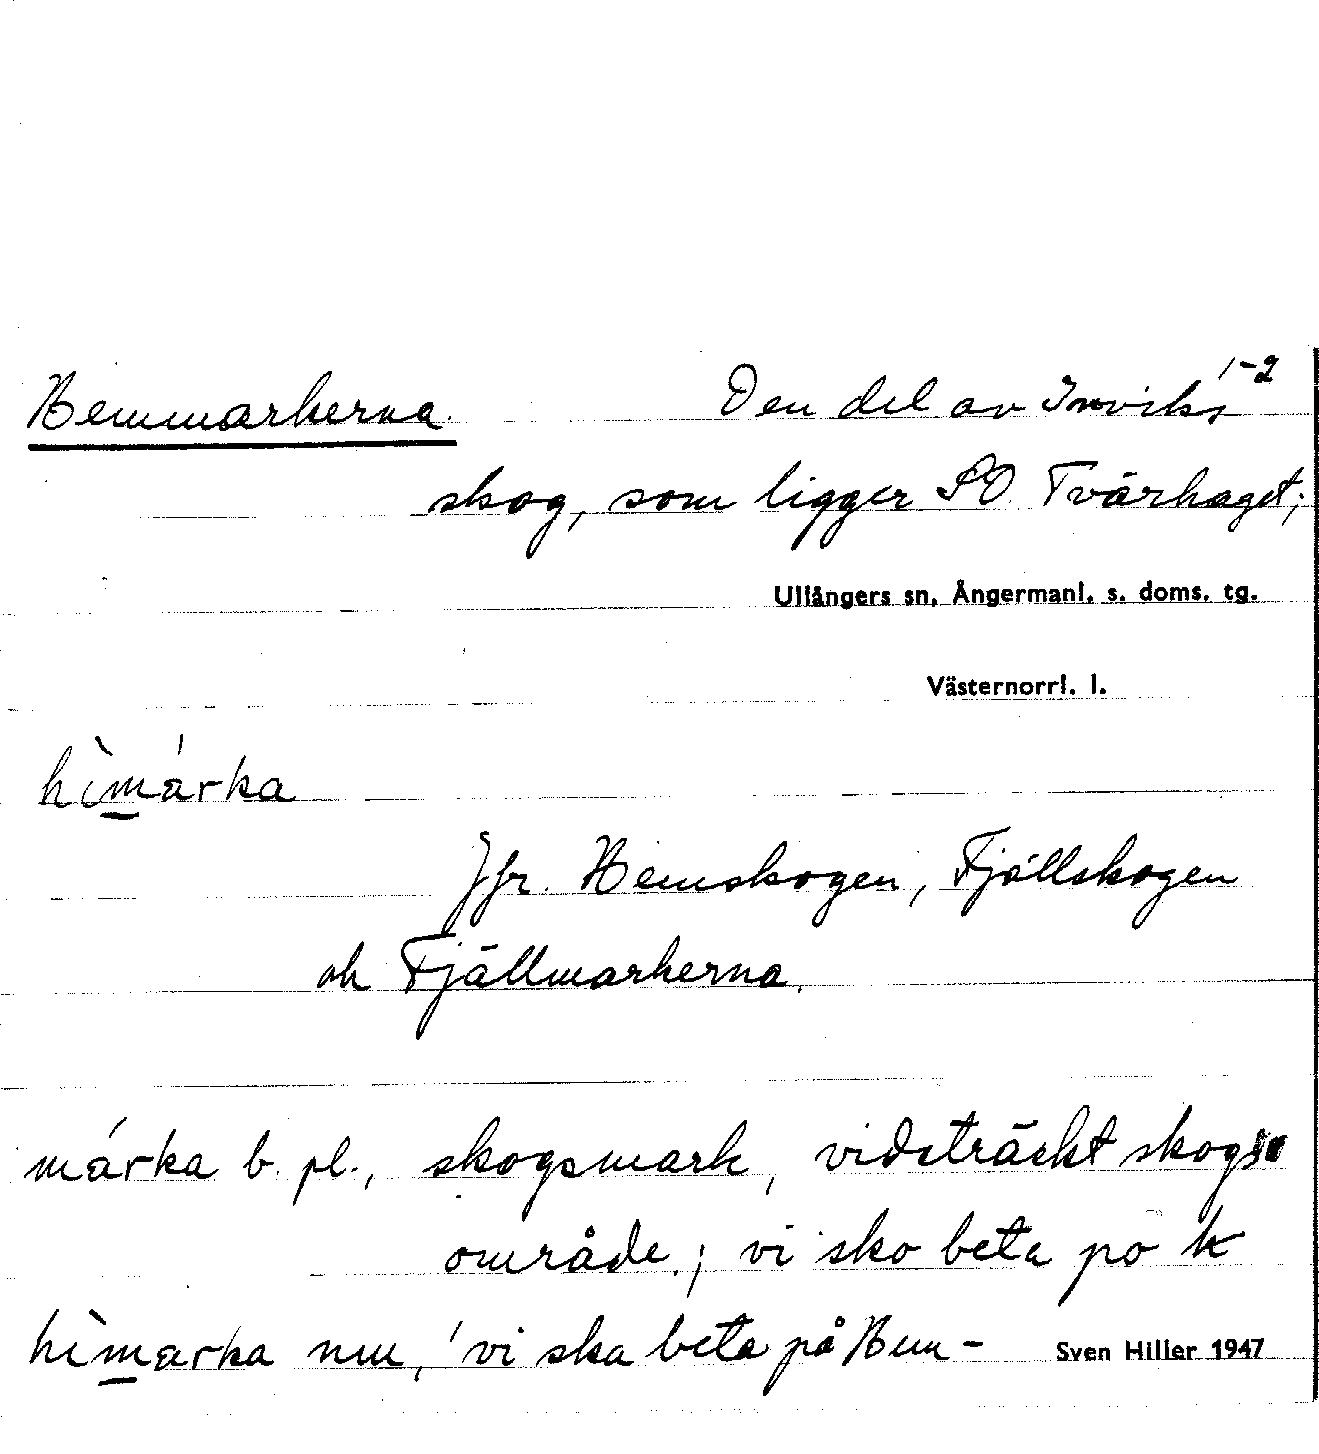 Hemmarkerna. Den del av Inviks 1-2
skog, som ligger SO Tvärhaget;
Ullångers sn, Ångermanl. s. doms. tg.
Västernorrl. l.
hìmárka
Jfr. Hemskogen, Fjällskogen
ok Fjällmarkerna.
márka b. pl., skogsmark, vidsträckt skogs
område; vi sko beta po
hìmarka nuu, 'vi ska beta på Hem-
Sven Hiller 1947